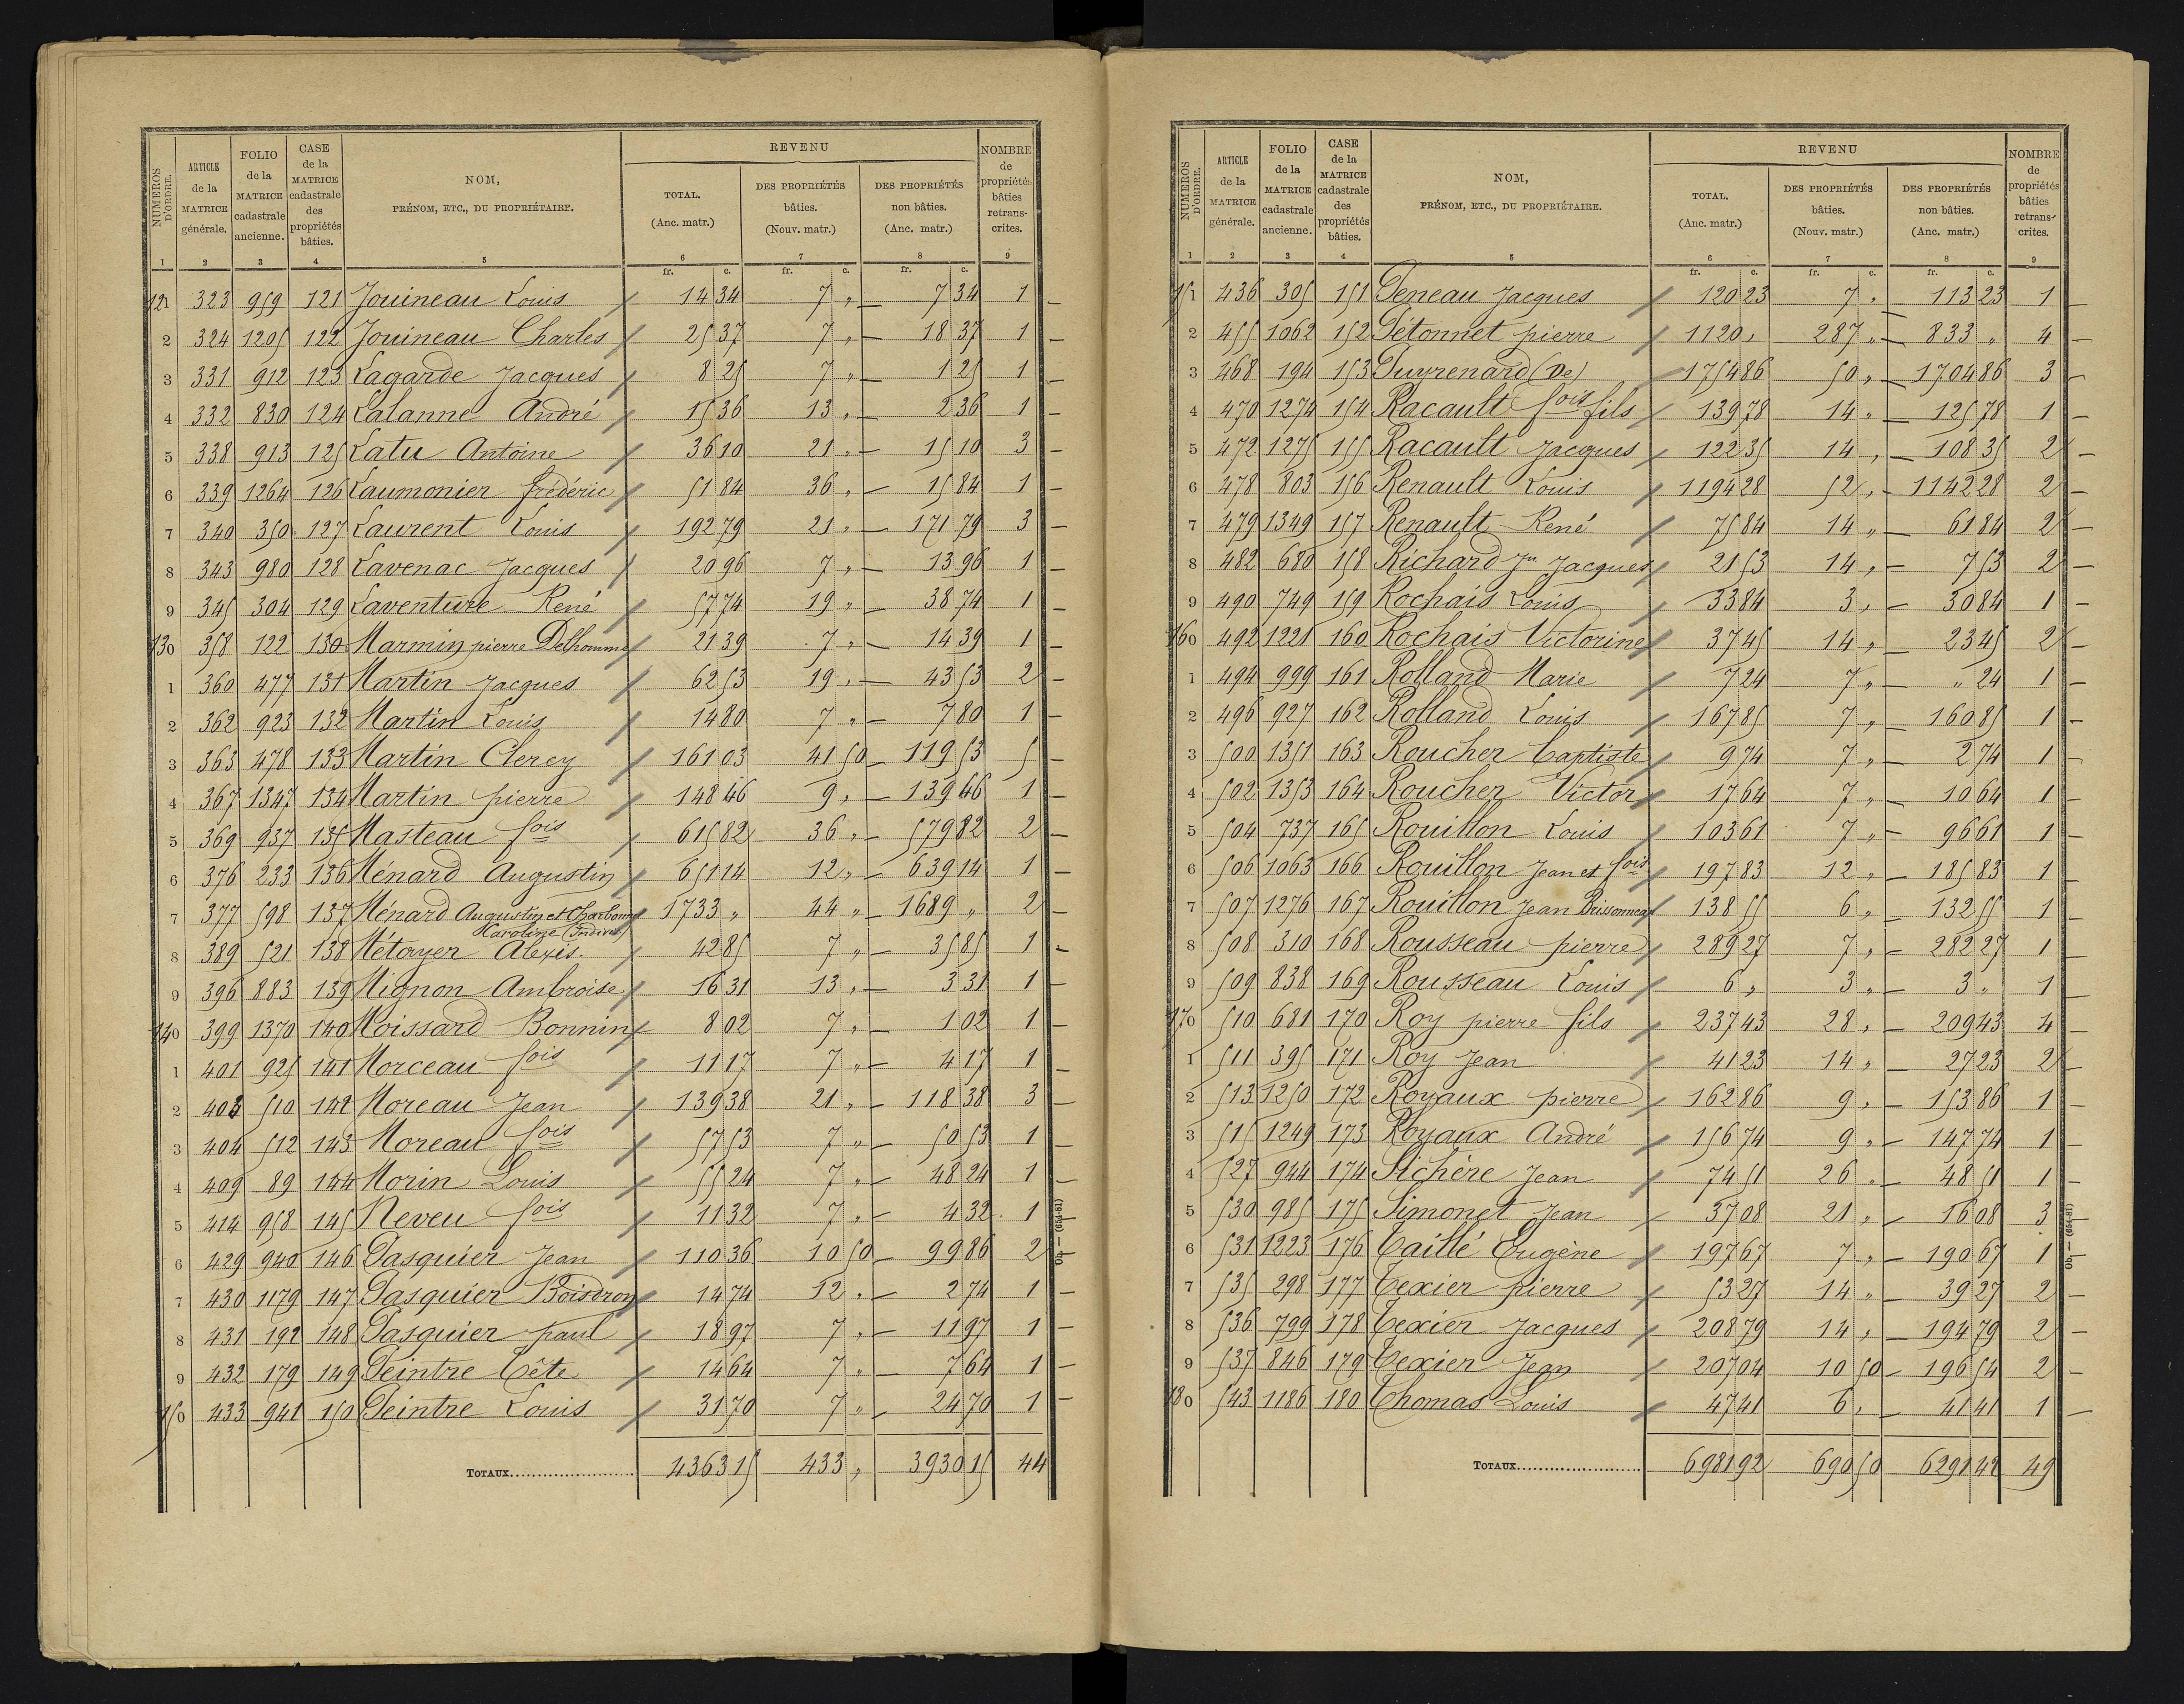 NUMÉROS D'ORDRE. | ARTICLE de la MATRICE générale. | FOLIO de la MATRICE cadastrale ancienne. | CASE de la MATRICE cadastrale des propriétés bâties. | NOM, PRÉNOM, ETC., DU PROPRIÉTAIRE. | REVENU | NOMBRE de propriétés bâties retrans-crites.
TOTAL. (Anc. matr.) | DES PROPRIÉTÉS bâties. (Nouv. matr.) | DES PROPRIÉTÉS non bâties. (Anc. matr.)
1 2 3 4 5 6 7 8 9
fr. c. fr. c. fr. c.
121 323 959 121 Jouineau Louis 14 34 7 " 7 34 1
2 324 1205 122 Jouineau Charles 25 37 7 " 18 37 1
3 331 912 123 Lagarde Jacques 8 25 7 " 1 25 1
4 332 830 124 Lalanne André 15 36 13 " 2 36 1
5 338 913 125 Latu Antoine 36 10 21 " 15 10 3
6 339 1264 126 Laumonier frédéric 51 84 36 " 15 84 1
7 340 350 127 Laurent Louis 192 79 21 " 171 79 3
8 343 980 128 Lavenac Jacques 20 96 7 " 13 96 1
9 345 304 129 Laventure René 57 74 19 " 38 74 1
130 358 122 130 Marmin pierre Delhomme 21 39 7 " 14 39 1
1 360 477 131 Martin Jacques 62 53 19 " 43 53 2
2 362 923 132 Martin Louis 14 80 7 " 7 80 1
3 363 478 133 Martin Clerey 161 03 41 50 119 53 5
4 367 1347 134 Martin pierre 148 46 9 " 139 46 1
5 369 937 135 Masteau fois 615 82 36 " 579 82 2
6 376 233 136 Ménard Augustin 651 14 12 " 639 14 1
7 377 598 137 Ménard Augustin et Charbonn 1733 " 44 " 1689 " 2
Karoline (Indivis)
8 389 521 138 Métayer Alexis. 42 85 7 " 35 85 1
9 396 883 139 Mignon Ambroise 16 31 13 " 3 31 1
140 399 1370 140 Moissard Bonnin 8 02 7 " 1 02 1
1 401 925 141 Morceau fois 11 17 7 " 4 17 1
2 403 510 142 Moreau Jean 139 38 21 " 118 38 3
3 404 512 143 Moreau fois 57 53 7 " 50 53 1
4 409 89 144 Morin Louis 55 24 7 " 48 24 1
5 414 958 145 Neveu fois 11 32 7 " 4 32 1
6 429 940 146 Pasquier Jean 110 36 10 50 99 86 2
7 430 1179 147 Pasquier Boisdron 14 74 12 " 2 74 1
8 431 192 148 Pasquier paul 18 97 7 " 11 97 1
9 432 179 149 Peintre Tête 14 64 7 " 7 64 1
150 433 941 150 Peintre Louis 31 70 7 " 24 70 1
TOTAUX 4363 15 433 " 3930 15 44
Ob. — (654-81)
NUMÉROS D'ORDRE. | ARTICLE de la MATRICE générale. | FOLIO de la MATRICE cadastrale ancienne. | CASE de la MATRICE cadastrale des propriétés bâties. | NOM, PRÉNOM, ETC., DU PROPRIÉTAIRE. | REVENU | NOMBRE de propriétés bâties retrans-crites.
TOTAL. (Anc. matr.) | DES PROPRIÉTÉS bâties. (Nouv. matr.) | DES PROPRIÉTÉS non bâties. (Anc. matr.)
1 2 3 4 5 6 7 8 9
fr. c. fr. c. fr. c.
151 436 305 151 Peneau Jacques 120 23 7 " 113 23 1
2 455 1062 152 Pétonnet pierre 1120 " 287 " 833 " 4
3 468 194 153 Puyrenard (De) 1754 86 50 " 1704 86 3
4 470 1274 154 Racault fois fils 139 78 14 " 125 78 1
5 472 1275 155 Racault Jacques 122 35 14 " 108 35 2
6 478 803 156 Renault Louis 1194 28 52 " 1142 28 2
7 479 1349 157 Renault René 75 84 14 " 61 84 2
8 482 680 158 Richard Jn Jacques 21 53 14 " 7 53 2
9 490 749 159 Rochais Louis 33 84 3 " 30 84 1
160 492 1221 160 Rochais Victorine 37 45 14 " 23 45 2
1 494 999 161 Rolland Marie 7 24 7 " " 24 1
2 496 927 162 Rolland Louis 167 85 7 " 160 85 1
3 500 1351 163 Roucher Baptiste 9 74 7 " 2 74 1
4 502 1353 164 Roucher Victor 17 64 7 " 10 64 1
5 504 737 165 Rouillon Louis 103 61 7 " 96 61 1
6 506 1063 166 Rouillon Jean et fois 197 83 12 " 185 83 1
7 507 1276 167 Rouillon Jean Brissonneau 138 55 6 " 132 55 1
8 508 310 168 Rousseau pierre 289 27 7 " 282 27 1
9 509 838 169 Rousseau Louis 6 " 3 " 3 " 1
170 510 681 170 Roy pierre fils 237 43 28 " 209 43 4
1 511 395 171 Roy Jean 41 23 14 " 27 23 2
2 513 1250 172 Royaux pierre 162 86 9 " 153 86 1
3 515 1249 173 Royaux André 156 74 9 " 147 74 1
4 527 944 174 Sichère Jean 74 51 26 " 48 51 1
5 530 985 175 Simonet Jean 37 08 21 " 16 08 3
6 531 1223 176 Taillé Eugène 197 67 7 " 190 67 1
7 535 298 177 Texier pierre 53 27 14 " 39 27 2
8 536 799 178 Texier Jacques 208 79 14 " 194 79 2
9 537 846 179 Texier Jean 207 04 10 50 196 54 2
180 543 1186 180 Thomas Louis 47 41 6 " 41 41 1
TOTAUX 6981 92 690 50 6291 42 49
Ob. — (654-81)